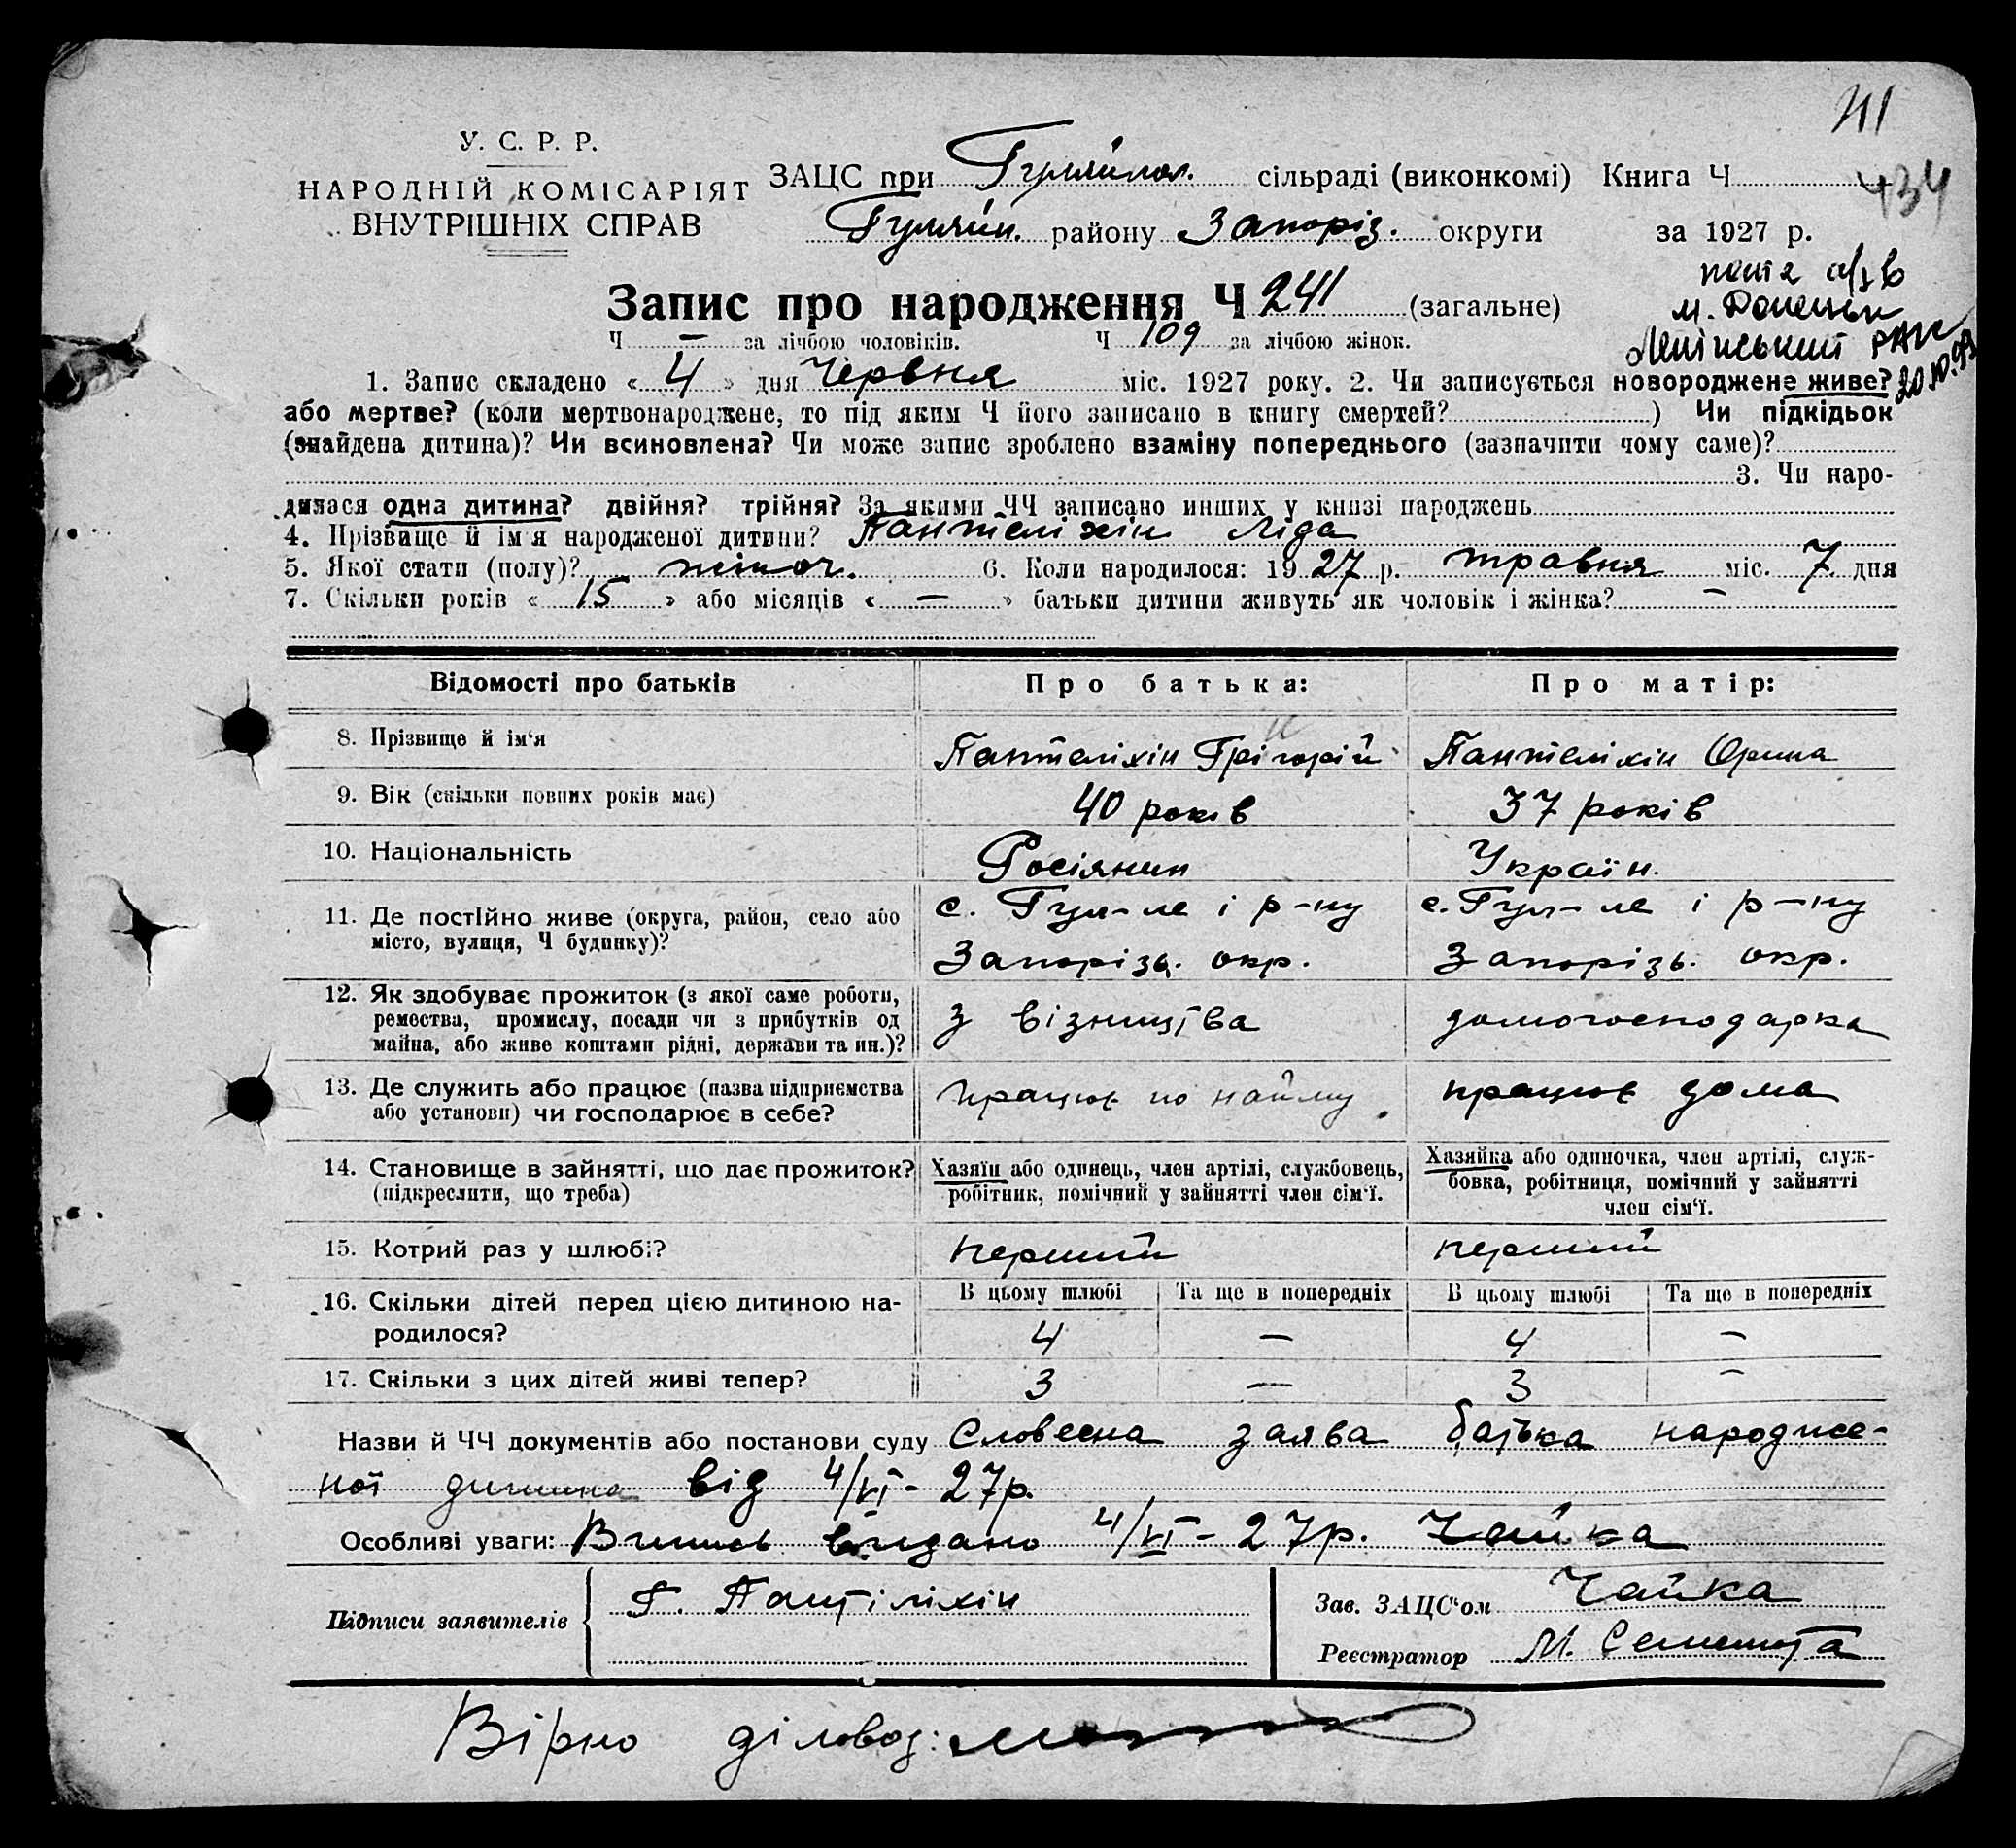 411
У. С. Р. Р.
НАРОДНІЙ КОМІСАРІЯТ
ВНУТРІШНІХ СПРАВ
ЗАЦС при Гуляйпол. сільраді (виконкомі) Книга Ч
434
Гуляйп. району Запоріз. округи за 1927 р.
м. Донецьк
Ленінський РАГС
Запис про народження Ч 241 (загальне)
Ч — за лічбою чоловіків. Ч 109 за лічбою жінок.
1. Запис складено « 4 » дня Червня міс. 1927 року. 2. Чи записується новороджене живе?
або мертве? (коли мертвонароджене, то під яким Ч його записано в книгу смертей? ) Чи підкідьок
(знайдена дитина)? Чи всиновлена? Чи може запис зроблено взаміну попереднього (зазначити чому саме)?
3. Чи наро-
дилася одна дитина? двійня? трійня? За якими ЧЧ записано инших у книзі народжень
4. Прізвище й ім'я народженої дитини? Пантеліхін Ліда
5. Якої стати (полу)? жіноч. 6. Коли народилося: 1927 р. травня міс. 7 дня
7. Скільки років « 15 » або місяців « — » батьки дитини живуть як чоловік і жінка? —
Відомості про батьків Про батька: Про матір:
8. Прізвище й ім'я Пантеліхін Грігорій Пантеліхін Орина
9. Вік (скільки повних років має) 40 років 37 років
10. Національність Росіянин Україн.
11. Де постійно живе (округа, район, село або
місто, вулиця, Ч будинку)?
с. Гул-ле і р-ну
Запорізь. окр.
с. Гул-ле і р-ну
Запорізь. окр.
12. Як здобуває прожиток (з якої саме роботи,
ремества, промислу, посади чи з прибутків од
майна, або живе коштами рідні, держави та ин.)?
з візництва домогосподарка
13. Де служить або працює (назва підприємства
або установи) чи господарює в себе?
працює по найму працює дома
14. Становище в зайнятті, що дає прожиток?
(підкреслити, що треба)
Хазяїн або одинець, член артілі, службовець,
робітник, помічний у зайнятті член сім'ї.
Хазяйка або одиночка, член артілі, служ-
бовка, робітниця, помічний у зайнятті
член сім'ї.
15. Котрий раз у шлюбі? перший перший
16. Скільки дітей перед цією дитиною на-
родилося?
В цьому шлюбі Та ще в попередніх В цьому шлюбі Та ще в попередніх
4 — 4 —
17. Скільки з цих дітей живі тепер? 3 — 3 —
Назви й ЧЧ документів або постанови суду Словесна заява батька народже-
ної дитини від 4/VI - 27р.
Особливі уваги: Випись видано 4/VI - 27р. Чайка
Підписи заявителів Г. Пантіліхін
Зав. ЗАЦС'ом Чайка
Реєстратор М.
Вірно діловод: